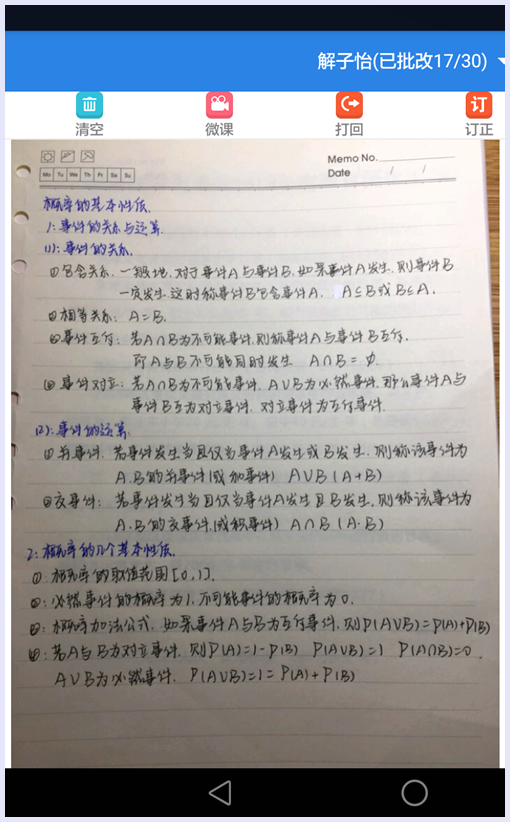 解子怡(已批改17/30)
清空 微课 打回 订正
Memo No.
Mo Tu We Th Fr Sa Su
Date / /
概率的基本性质.
1:事件的关系与运算.
(1):事件的关系.
①包含关系. 一般地,对于事件A与事件B,如果事件A发生,则事件B
一定发生.这时称事件B包含事件A. A⊆B或B⊆A.
②相等关系: A=B.
③事件互斥: 若A∩B为不可能事件,则称事件A与事件B互斥.
即A与B不可能同时发生 A∩B=∅.
④事件对立: 若A∩B为不可能事件, A∪B为必然事件,那么事件A与
事件B互为对立事件. 对立事件为互斥事件.
(2):事件的运算.
①并事件. 若事件发生当且仅当事件A发生或B发生,则称该事件为
A.B的并事件(或加事件) A∪B(A+B)
②交事件: 若事件发生当且仅当事件A发生且B发生,则称该事件为
A.B的交事件(或积事件) A∩B(A·B)
2:概率的几个基本性质.
①:概率的取值范围[0,1].
②:必然事件的概率为1,不可能事件的概率为0.
③:概率加法公式. 如果事件A与B为互斥事件,则P(A∪B)=P(A)+P(B)
④:若A与B为对立事件,则P(A)=1-P(B) P(A∪B)=1 P(A∩B)=0.
A∪B为必然事件. P(A∪B)=1=P(A)+P(B)